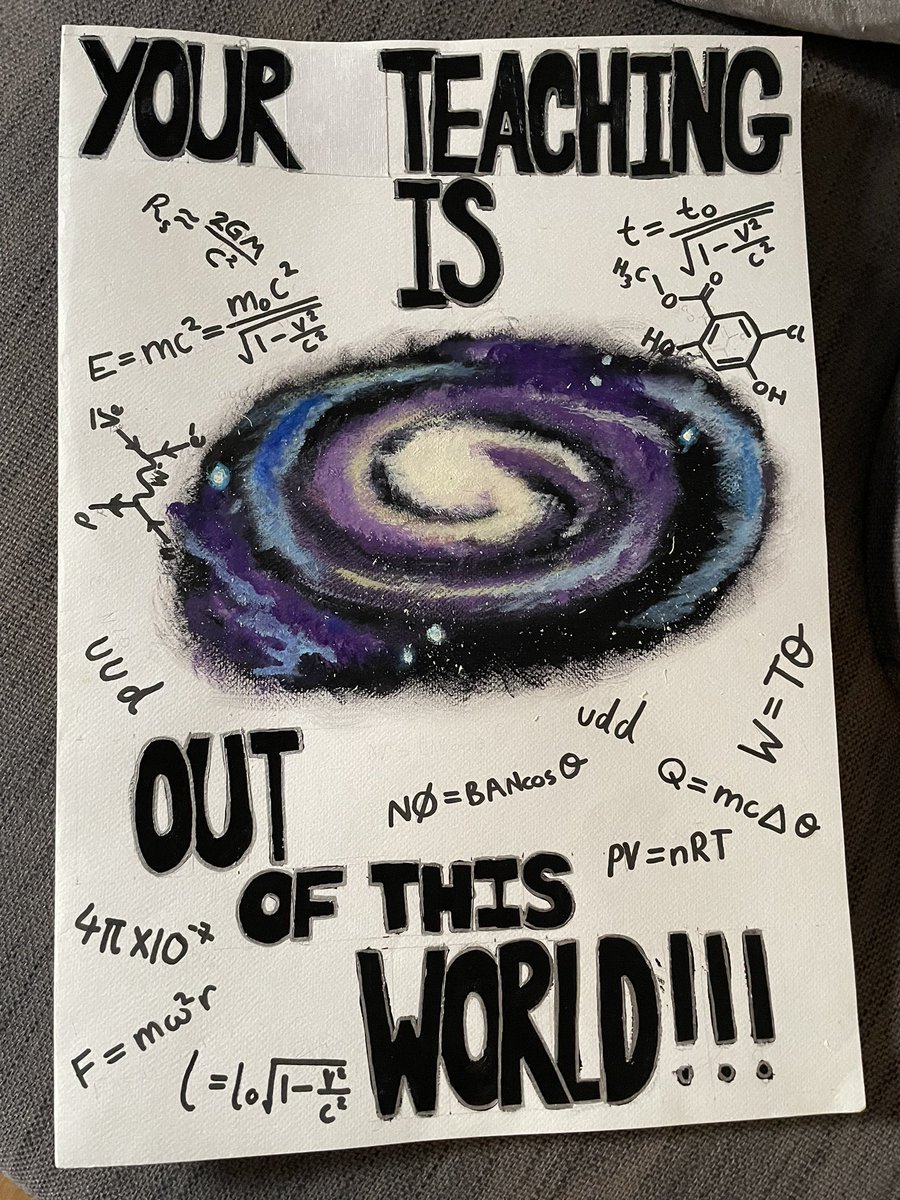 YOUR TEACHING
IS
Rs ≈ 2GM/C²
t = t₀/√(1-V²/C²)
E = mc² = m₀c²/√(1-V²/C²)
H₃C
O
O
HO
Cl
OH
V̅e
e⁻
W⁻
P
UUd
udd
W = Tθ
NØ = BANcosθ
Q = mcΔθ
PV = nRT
OUT
OF THIS
WORLD!!!
4π×10⁻⁷
F = mω²r
l = l₀√(1-V²/C²)